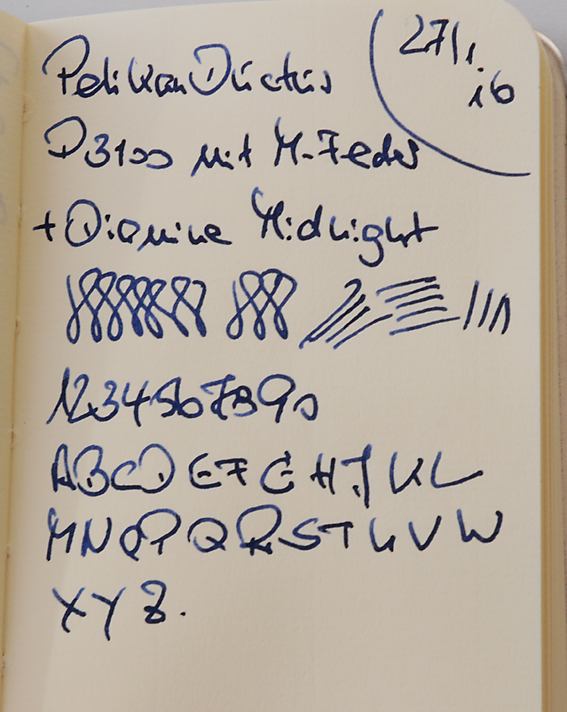 Pelikan Ductus
27/1.
16
P3100 mit M-Feder
+ Diamine Midnight
1234567890
ABCD EFG HIJ KL
MNOP QRST UVW
XYZ.